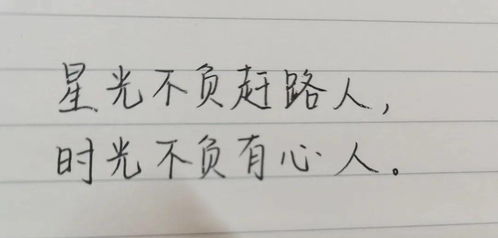 星光不负赶路人,
时光不负有心人。